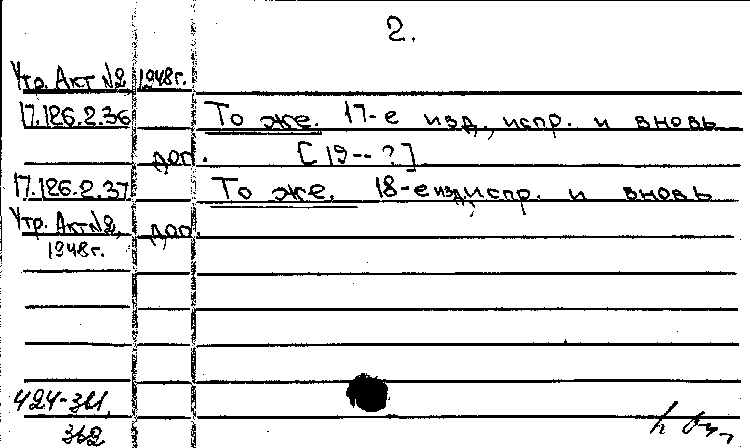 2.
Утр. Акт №2 1948г.
17.126.2.36 То же. 17-е изд., испр. и вновь
доп. [19--?]
17.126.2.37 То же. 18-е изд. испр. и вновь
Утр. Акт №2, доп.
1948г.
424-311,
362